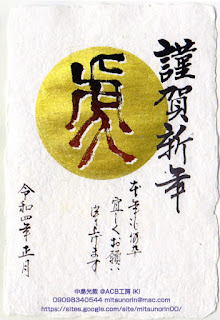 謹賀新年
寅
本年も何卒
宜しくお願い
申し上げます
令和四年正月
中島光教 @ACB工房 (K)
09098340544 mitsunorin@mac.com
https://sites.google.com/site/mitsunorin00/